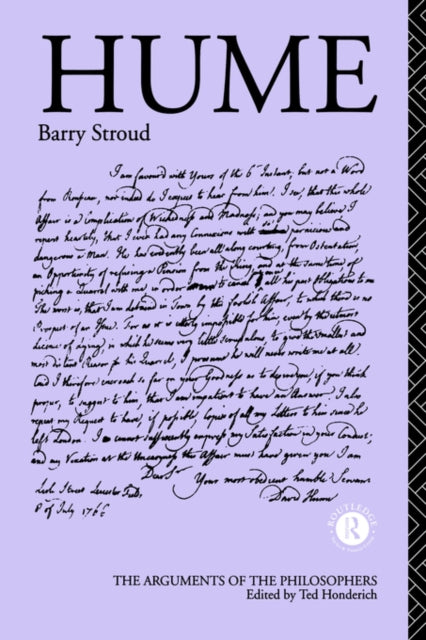 HUME
Barry Stroud
I am favoured with Yours of the 6th Instant, but not a Word
from Rousseau, nor indeed do I expect to hear from him. I see, that this whole
Affair is a Complication of Wickedness and Madness; and you may believe I
repent heartily, that I ever had any Connexions with so pernicious and
dangerous a Man. He has evidently been all along courting, from Ostentation,
an Opportunity of refusing a Pension from the King, and at the same time of
picking a Quarrel with me, in order to cancel at once all his past Obligations to me
The worst is, that I am detained in Town by this foolish Affair, to which there is no
Prospect of an Issue. For as it is utterly impossible for him, even by the utmost
licence of lying, in which he seems very little scrupulous, to give the smallest and
most distant Reason for his Quarrel, I presume he will never write me at all.
and I therefore encroach so far on your Goodness as to desire you, if you think
proper, to suggest to him, that I am impatient to have an Answer. I also
repeat my Request to have, if possible, Copies of all my Letters to him since he
left London. I cannot sufficiently express my Satisfaction in your Conduct,
and my Vexation at the Uneasyness the Affair must have given you I am
Dear Sir
Your most obedient humble Servant
David Hume
Lisle Street Leicester Fields
8 of July 1766
ROUTLEDGE
R
THE ARGUMENTS OF THE PHILOSOPHERS
Edited by Ted Honderich